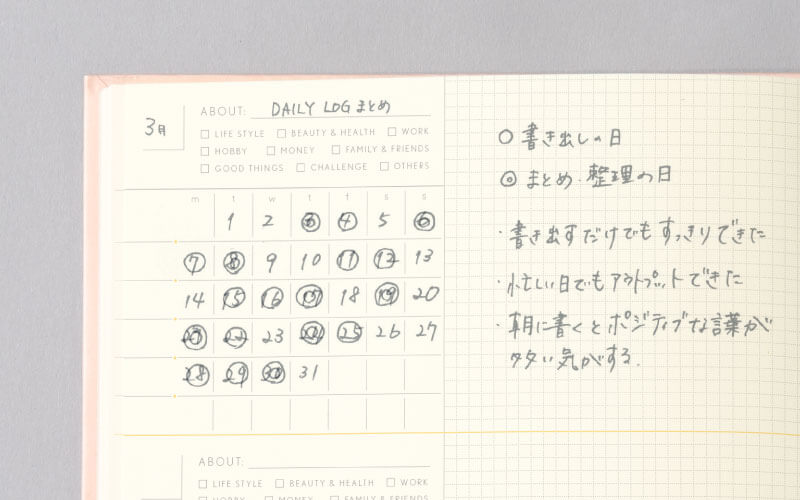 3月
ABOUT: DAILY LOG まとめ
LIFE STYLE BEAUTY & HEALTH WORK
HOBBY MONEY FAMILY & FRIENDS
GOOD THINGS CHALLENGE OTHERS
m t w t f s s
1 2 3 4 5 6
7 8 9 10 11 12 13
14 15 16 17 18 19 20
21 22 23 24 25 26 27
28 29 30 31
○ 書き出しの日
◎ まとめ・整理の日
・書き出すだけでもすっきりできた
・忙しい日でもアウトプットできた
・朝に書くとポジティブな言葉が
多い気がする.
ABOUT:
LIFE STYLE BEAUTY & HEALTH WORK
HOBBY MONEY FAMILY & FRIENDS